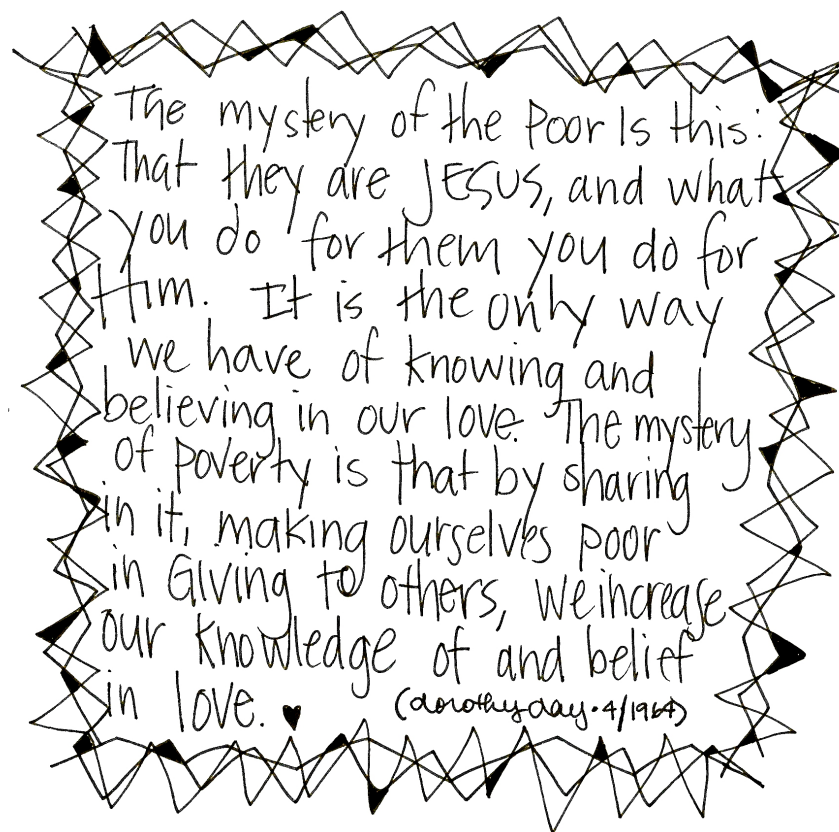 The mystery of the poor Is this:
That they are JESUS, and what
you do for them you do for
Him. It is the only way
we have of knowing and
believing in our love. The mystery
of poverty is that by sharing
in it, making ourselves poor
in Giving to others, we increase
our knowledge of and belief
in love. ♥ (dorothy day • 4/1964)